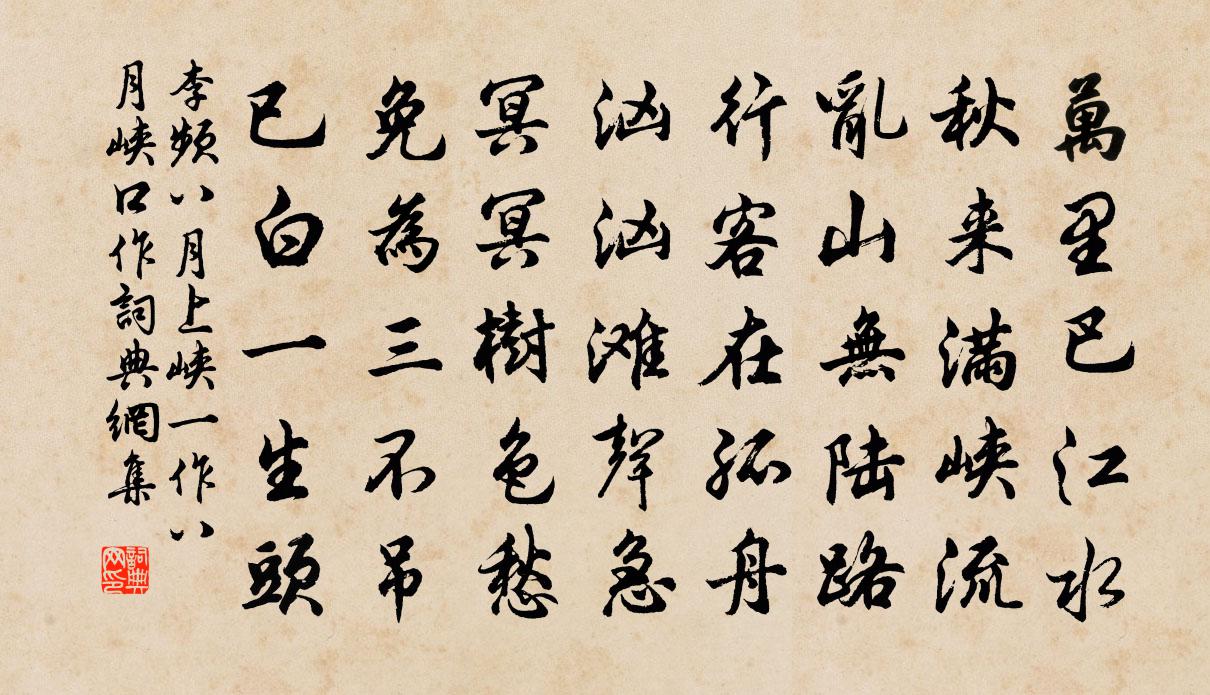 萬里巴江水
秋来满峡流
亂山無陆路
行客在孤舟
汹汹滩聲急
冥冥樹色愁
免為三不吊
已白一生頭
李频八月上峡一作八
月峡口作詞典網集
詞典网印